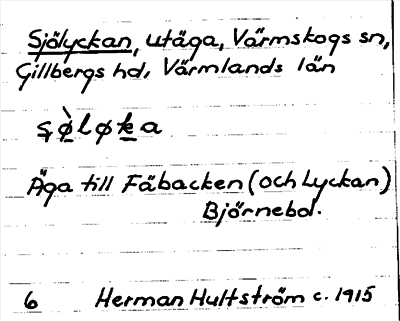 Sjölyckan, utäga, Värmskogs sn,
Gillbergs hd, Värmlands län
Äga till Fäbacken (och Lyckan)
Björnebol.
6 Herman Hultström c. 1915